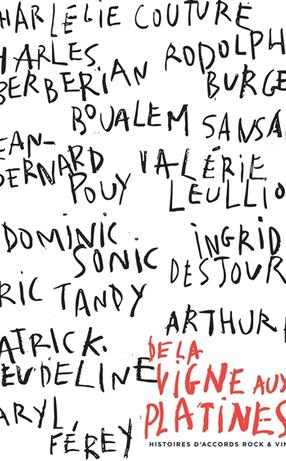 HARLÉLIE COUTURE
HARLES
BERBERIAN
RODOLPH
BURGE
BOUALEM SANSA
EAN-
BERNARD
POUY
VALÉRIE
LEULLIO
DOMINIC
SONIC
INGRID
DESJOUR
RIC TANDY
ARTHUR
ATRICK
EUDELINE
ARYL
FÉREY
DE LA
VIGNE AUX
PLATINES
HISTOIRES D'ACCORDS ROCK & VIN